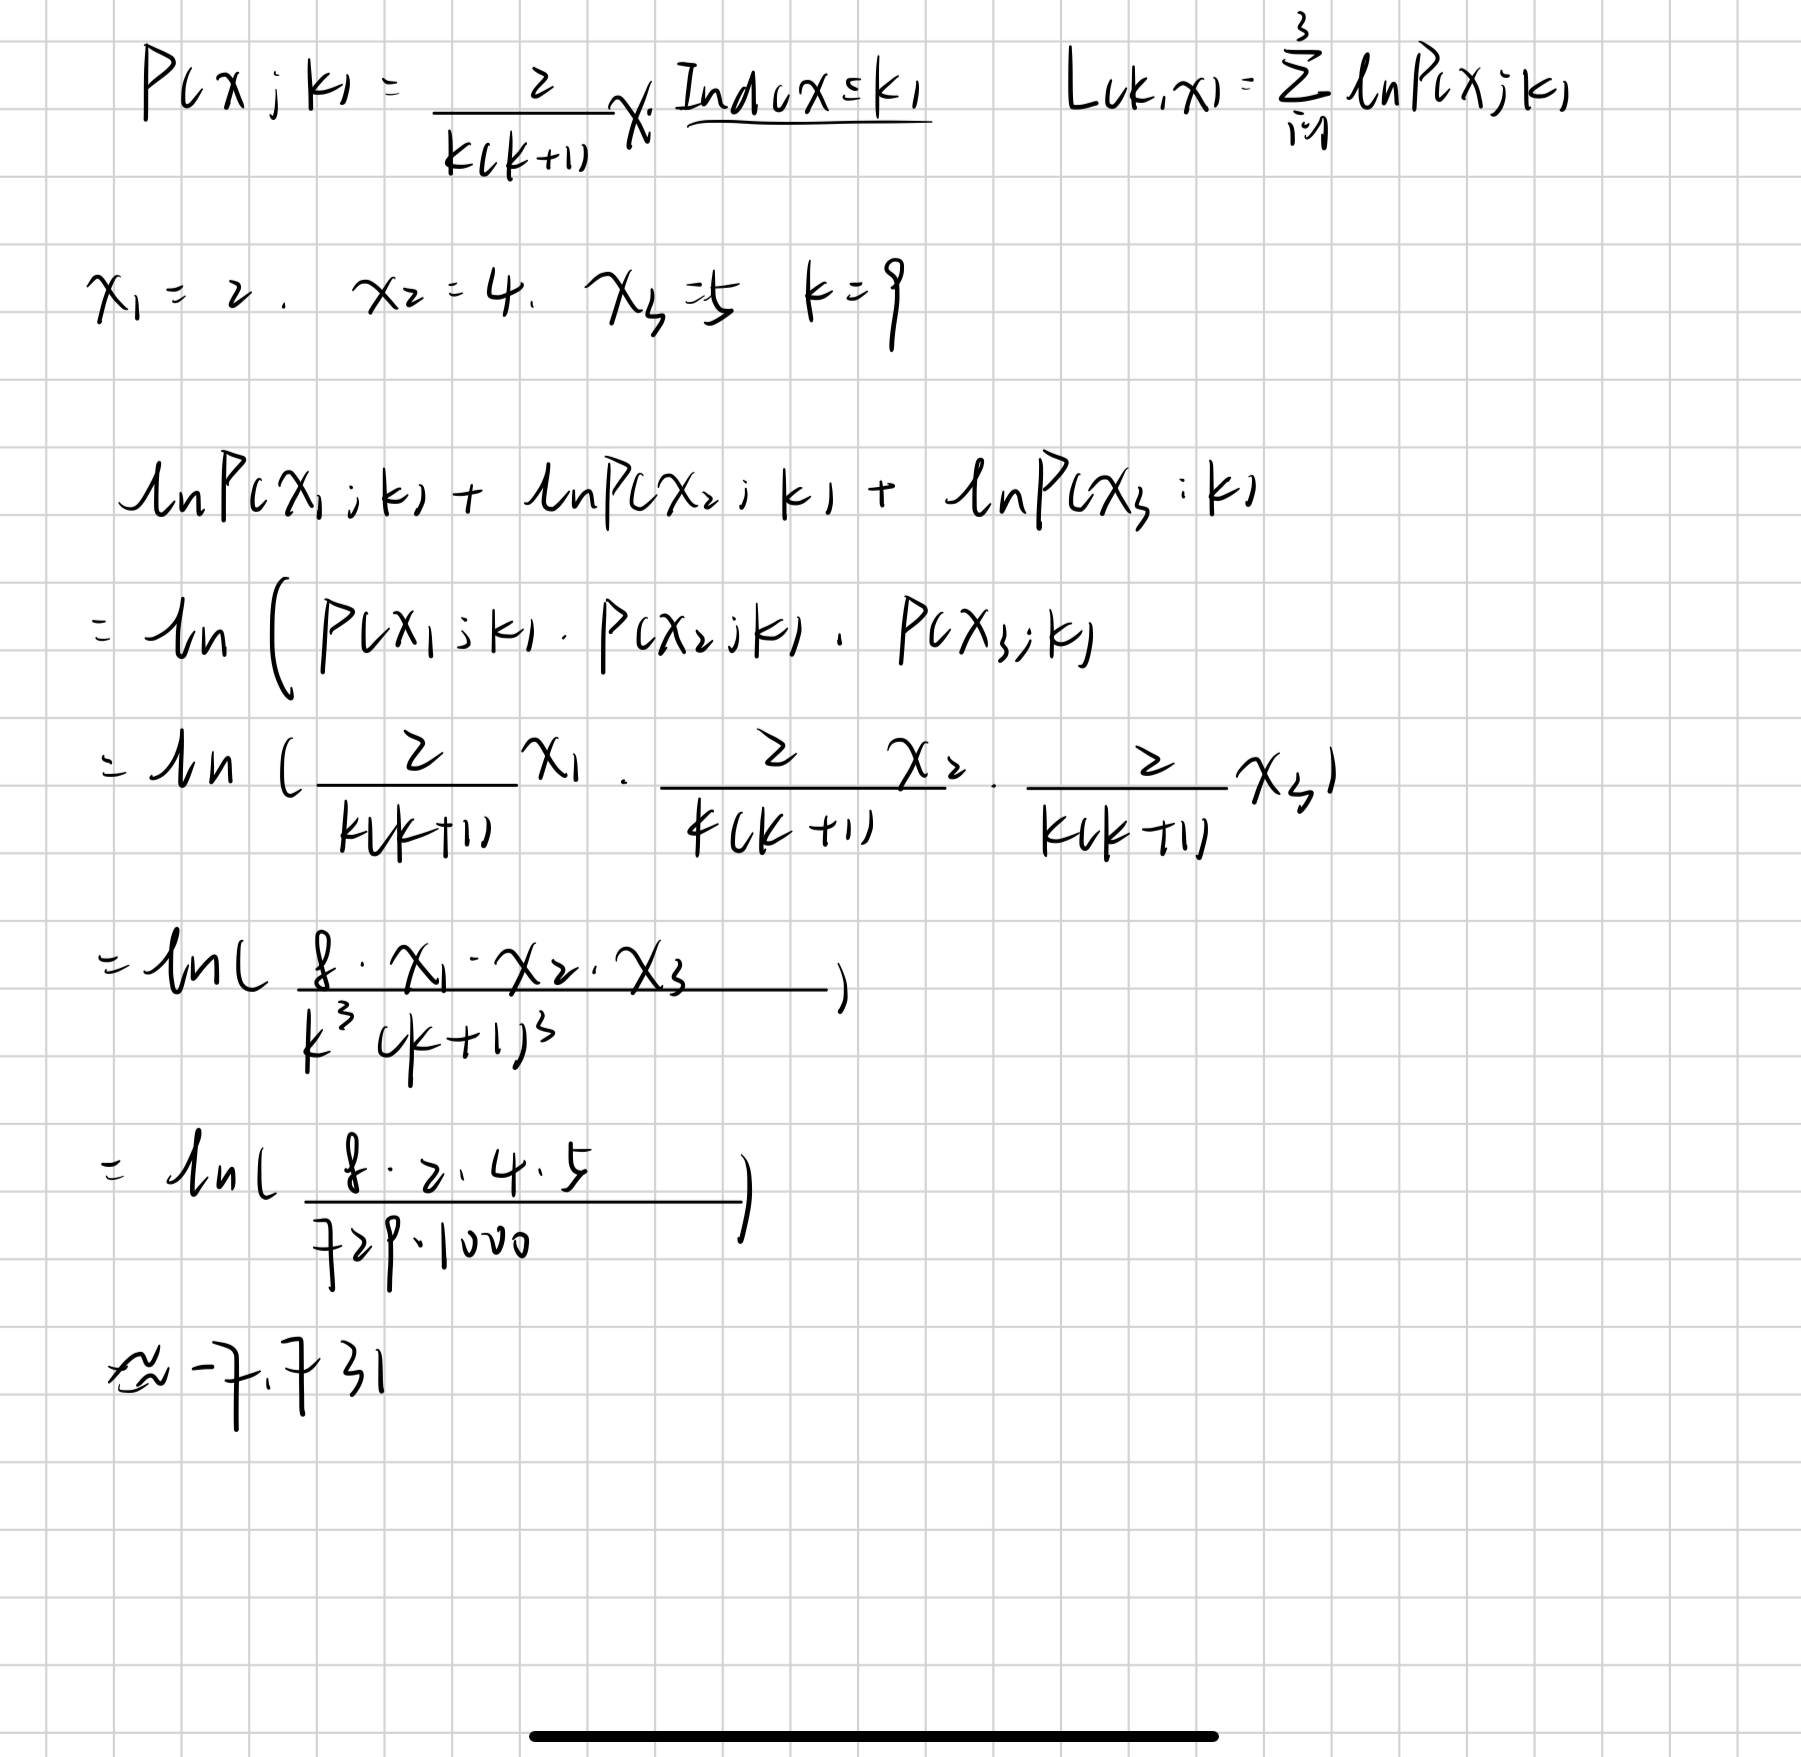 P(x;k) = 2/(k(k+1)) x · Ind(x≤k)   L(k,x) = ∑_{i=1}^{3} ln P(x;k)
x₁ = 2. x₂ = 4. x₃ = 5 k = 9
ln P(x₁;k) + ln P(x₂;k) + ln P(x₃;k)
= ln ( P(x₁;k) · P(x₂;k) · P(x₃;k)
= ln ( 2/(k(k+1)) x₁ · 2/(k(k+1)) x₂ · 2/(k(k+1)) x₃ )
= ln ( 8·x₁·x₂·x₃ / k³(k+1)³ )
= ln ( 8·2·4·5 / 729·1000 )
≈ -7.731